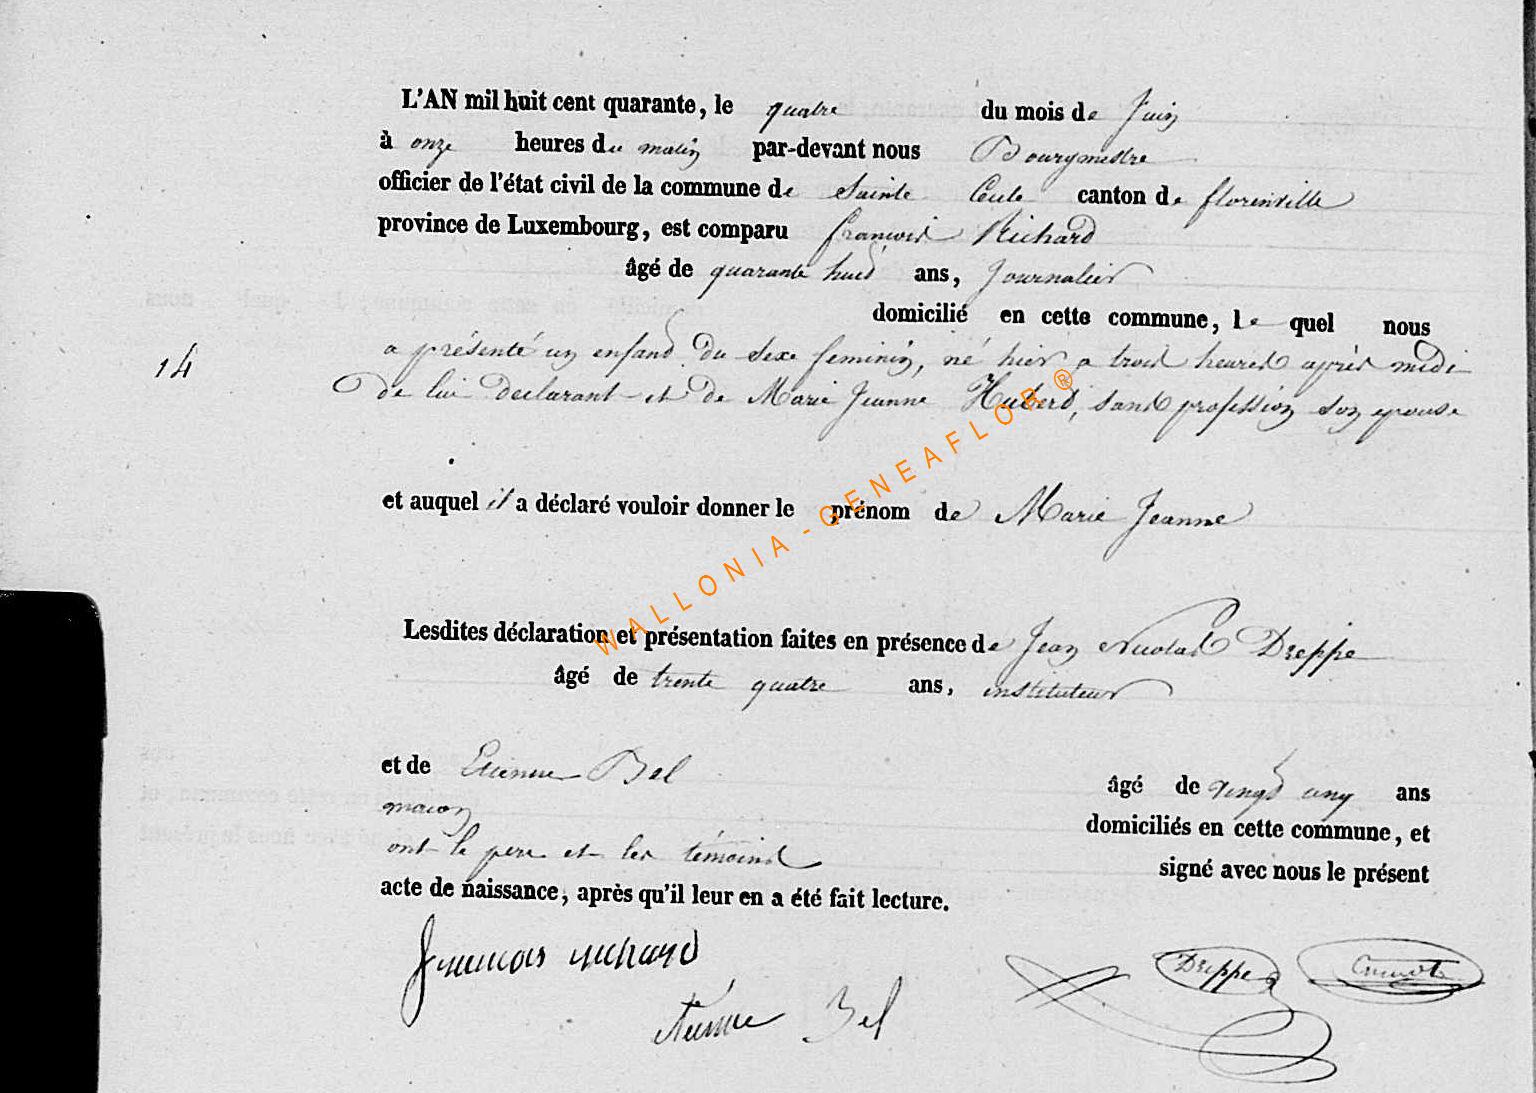 L'AN mil huit cent quarante, le quatre du mois de Juin
à onze heures du matin par-devant nous Bourgmestre
officier de l'état civil de la commune de Sainte Cecile canton de florenville
province de Luxembourg, est comparu françois Richard
âgé de quarante huit ans, Journalier
domicilié en cette commune, le quel nous
14
a présenté un enfant du sexe feminin, né hier a trois heures après midi
de lui declarant et de Marie Jeanne Hubert, sans profession son epouse
et auquel il a déclaré vouloir donner le prénom de Marie Jeanne
WALLONIA - GENEAFLOR ®
Lesdites déclaration et présentation faites en présence de Jean Nicolas Dreppe
âgé de trente quatre ans, instituteur
et de Etienne Bel âgé de vingt cinq ans
macon domiciliés en cette commune, et
ont le pere et les témoins signé avec nous le présent
acte de naissance, après qu'il leur en a été fait lecture.
francois richard Dreppe
Etienne Bel